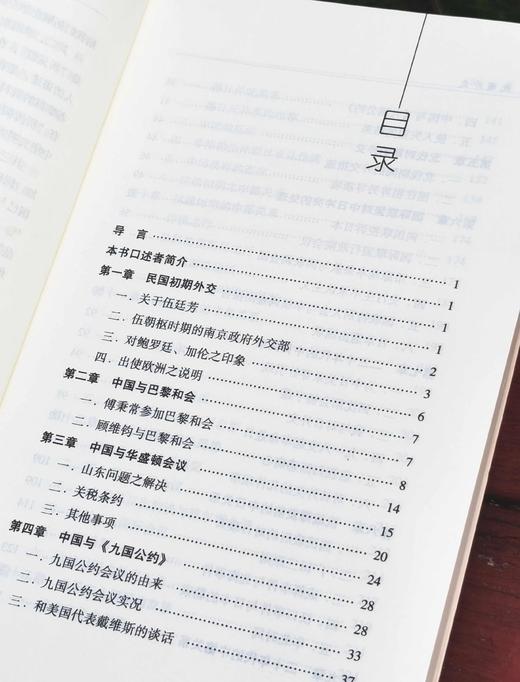 目录
导 言 1
本书口述者简介 1
第一章 民国初期外交 1
一．关于伍廷芳 1
二．伍朝枢时期的南京政府外交部 2
三．对鲍罗廷、加伦之印象 3
四．出使欧洲之说明 6
第二章 中国与巴黎和会 7
一．傅秉常参加巴黎和会 7
二．顾维钧与巴黎和会 8
第三章 中国与华盛顿会议 14
一．山东问题之解决 15
二．关税条约 20
三．其他事项 24
第四章 中国与《九国公约》 28
一．九国公约会议的由来 28
二．九国公约会议实况 33
三．和美国代表戴维斯的谈话 37